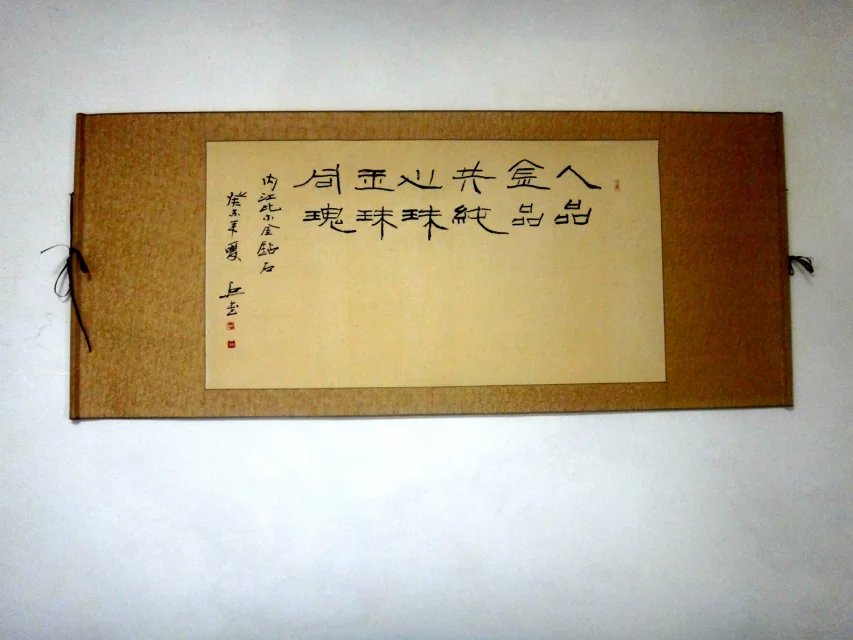 人品
金品
共純
心珠
玉珠
同瑰
内江比尔金钻石
癸未年夏